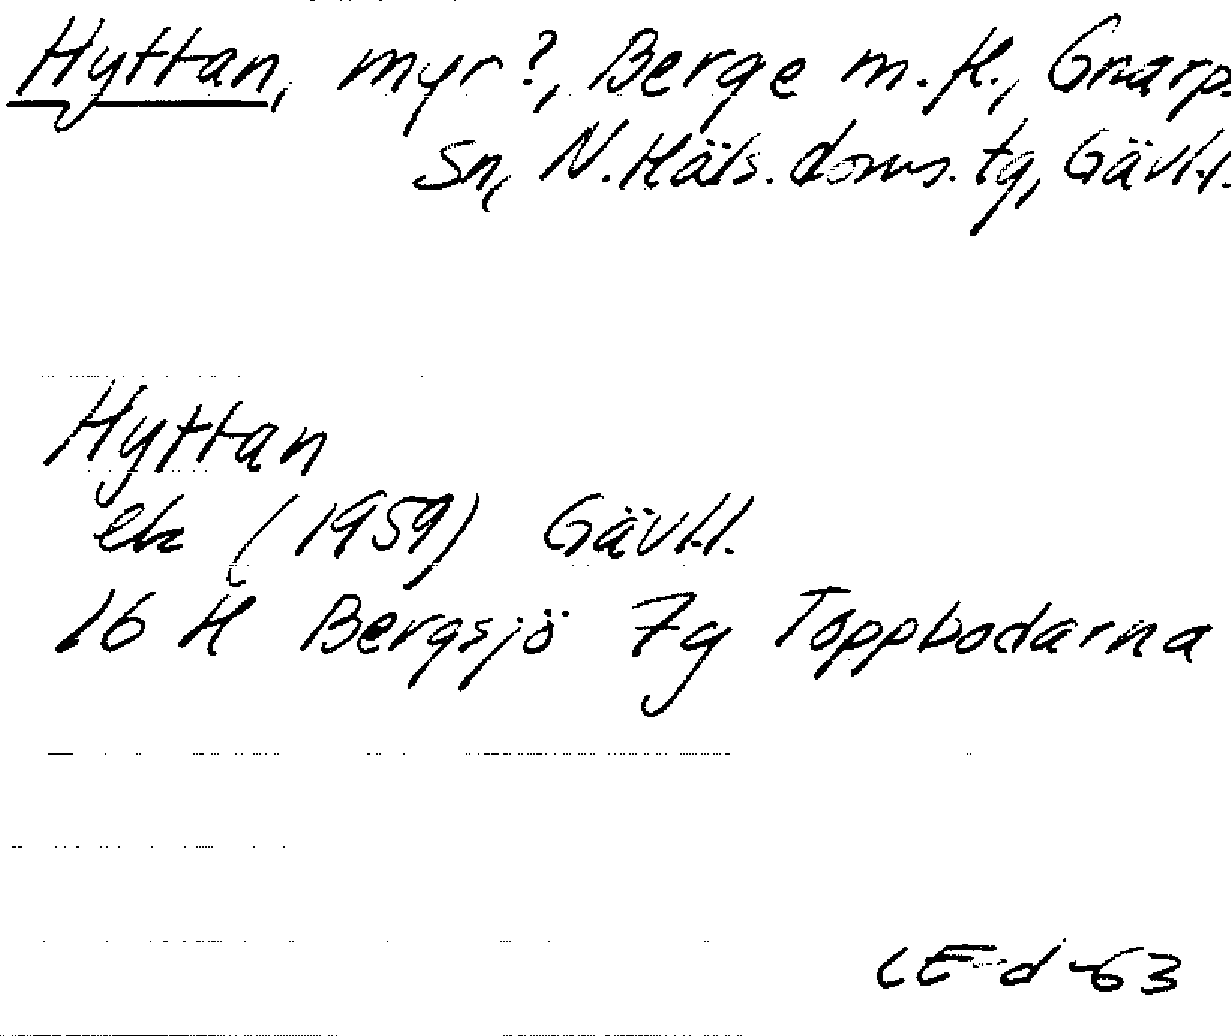 Hyttan, myr?, Berge m.fl., Gnarps
Sn, N.Häls.doms.tg, Gävl.l.
Hyttan
ek (1959) Gävl.l.
16 H Bergsjö 7g Toppbodarna
CE-d -63